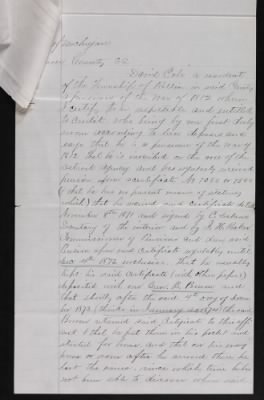 of Michigan
County SS
David Cole a resident
of the Township of in said County
a pensioner of the War of 1812 whom
I certify to be respectable and entitled
to credit who being by me first duly
sworn according to law deposes and
says that he is a pensioner of the war of
1812 that he is inscribed on the roll of the
Detroit Agency and has regularly received
pension upon certificate No
(that he has no present means of stating
which) that he received said certificate
November 8th 1871 and signed by C Delano
Secretary of the interior and by J. H. Baker
Commissioner of Pensions and drew said
Pension upon said certificate regularly until
Dec 4th 1872 inclusive. That he usually
kept his said certificate (with other papers)
deposited with one B Brown and
that shortly after the said 4th day of
1872 (thinks in January 1873) the said
Brown returned said certificate to this affi
ant & that he put them in his pocket and
started for home, and that on his way
home or soon after he arrived there he
lost the same, since which time he has
not been able to discover where said